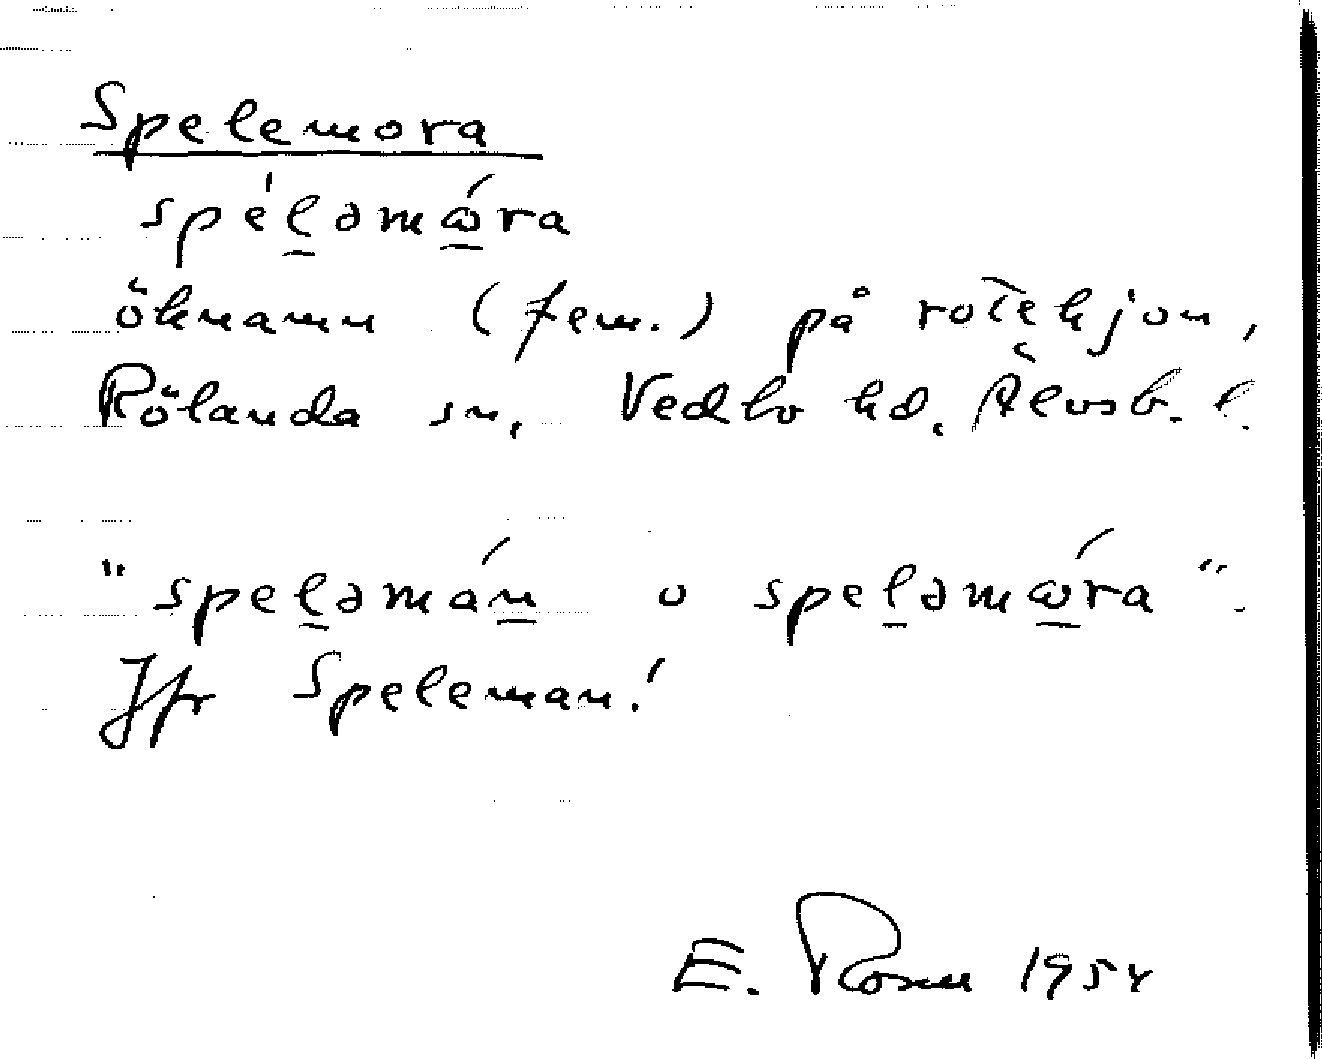 Spelemora
spéləmώra
öknamn (fem.) på rotekjon,
Rölanda sn, Vedbo hd. Älvsb. l.
"speləmán o speləmώra".
Jfr Speleman!
E. Rosen 1954